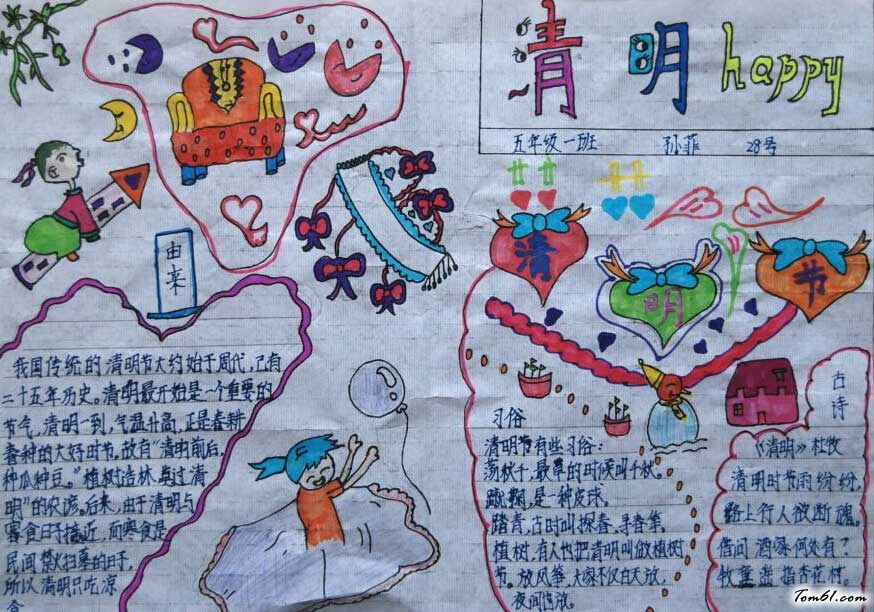 清明 happy
五年级一班 孙菲 28号
由来
我国传统的清明节大约始于周代,已有
二十五年历史。清明最开始是一个重要的
节气,清明一到,气温升高,正是春耕
春种的大好时节,故有"清明前后,
种瓜种豆。"植树造林,莫过清
明"的农谚。后来,由于清明与
寒食日子接近,而寒食是
民间禁火扫墓的日子,
所以清明只吃凉
食
清明节
习俗
清明节有些习俗:
荡秋千,最早的时候叫千秋。
蹴鞠,是一种皮球。
踏青,古时叫探春、寻春等。
植树,有人也把清明叫做植树
节。放风筝,大家不仅白天放,
夜间也放。
古诗
《清明》杜牧
清明时节雨纷纷,
路上行人欲断魂。
借问酒家何处有?
牧童遥指杏花村。
Tom61.com